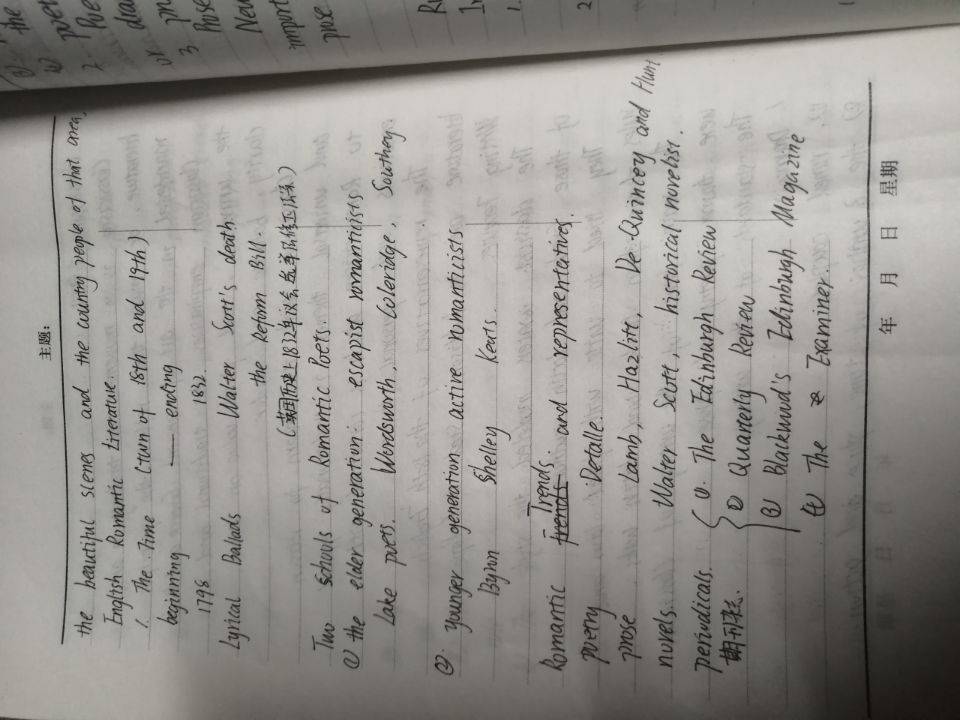 主题:
the beautiful scenes and the country people of that area,
English Romantic Literature
1. The Time (turn of 18th and 19th)
beginning —— ending
1798 1832
Lyrical Ballads Walter Scott's death
the Reform Bill.
(英国历史上1832年议会改革法修正法案)
Two schools of Romantic Poets.
① the elder generation: escapist romanticists
Lake poets. Wordsworth, Coleridge, Southey.
② younger generation active romanticists
Byron Shelley Keats.
Romantic Trends. and representatives.
poetry Detalle.
prose Lamb, Hazlitt, De Quincey and Hunt
novels. Walter Scott, historical novelist.
periodicals. ① The Edinburgh Review
期刊杂志. ② Quarterly Review
③ Blackwood's Edinburgh Magazine
④ The Examiner.
年 月 日 星期
the
2
3 Prose
New
import
prose
1.
2